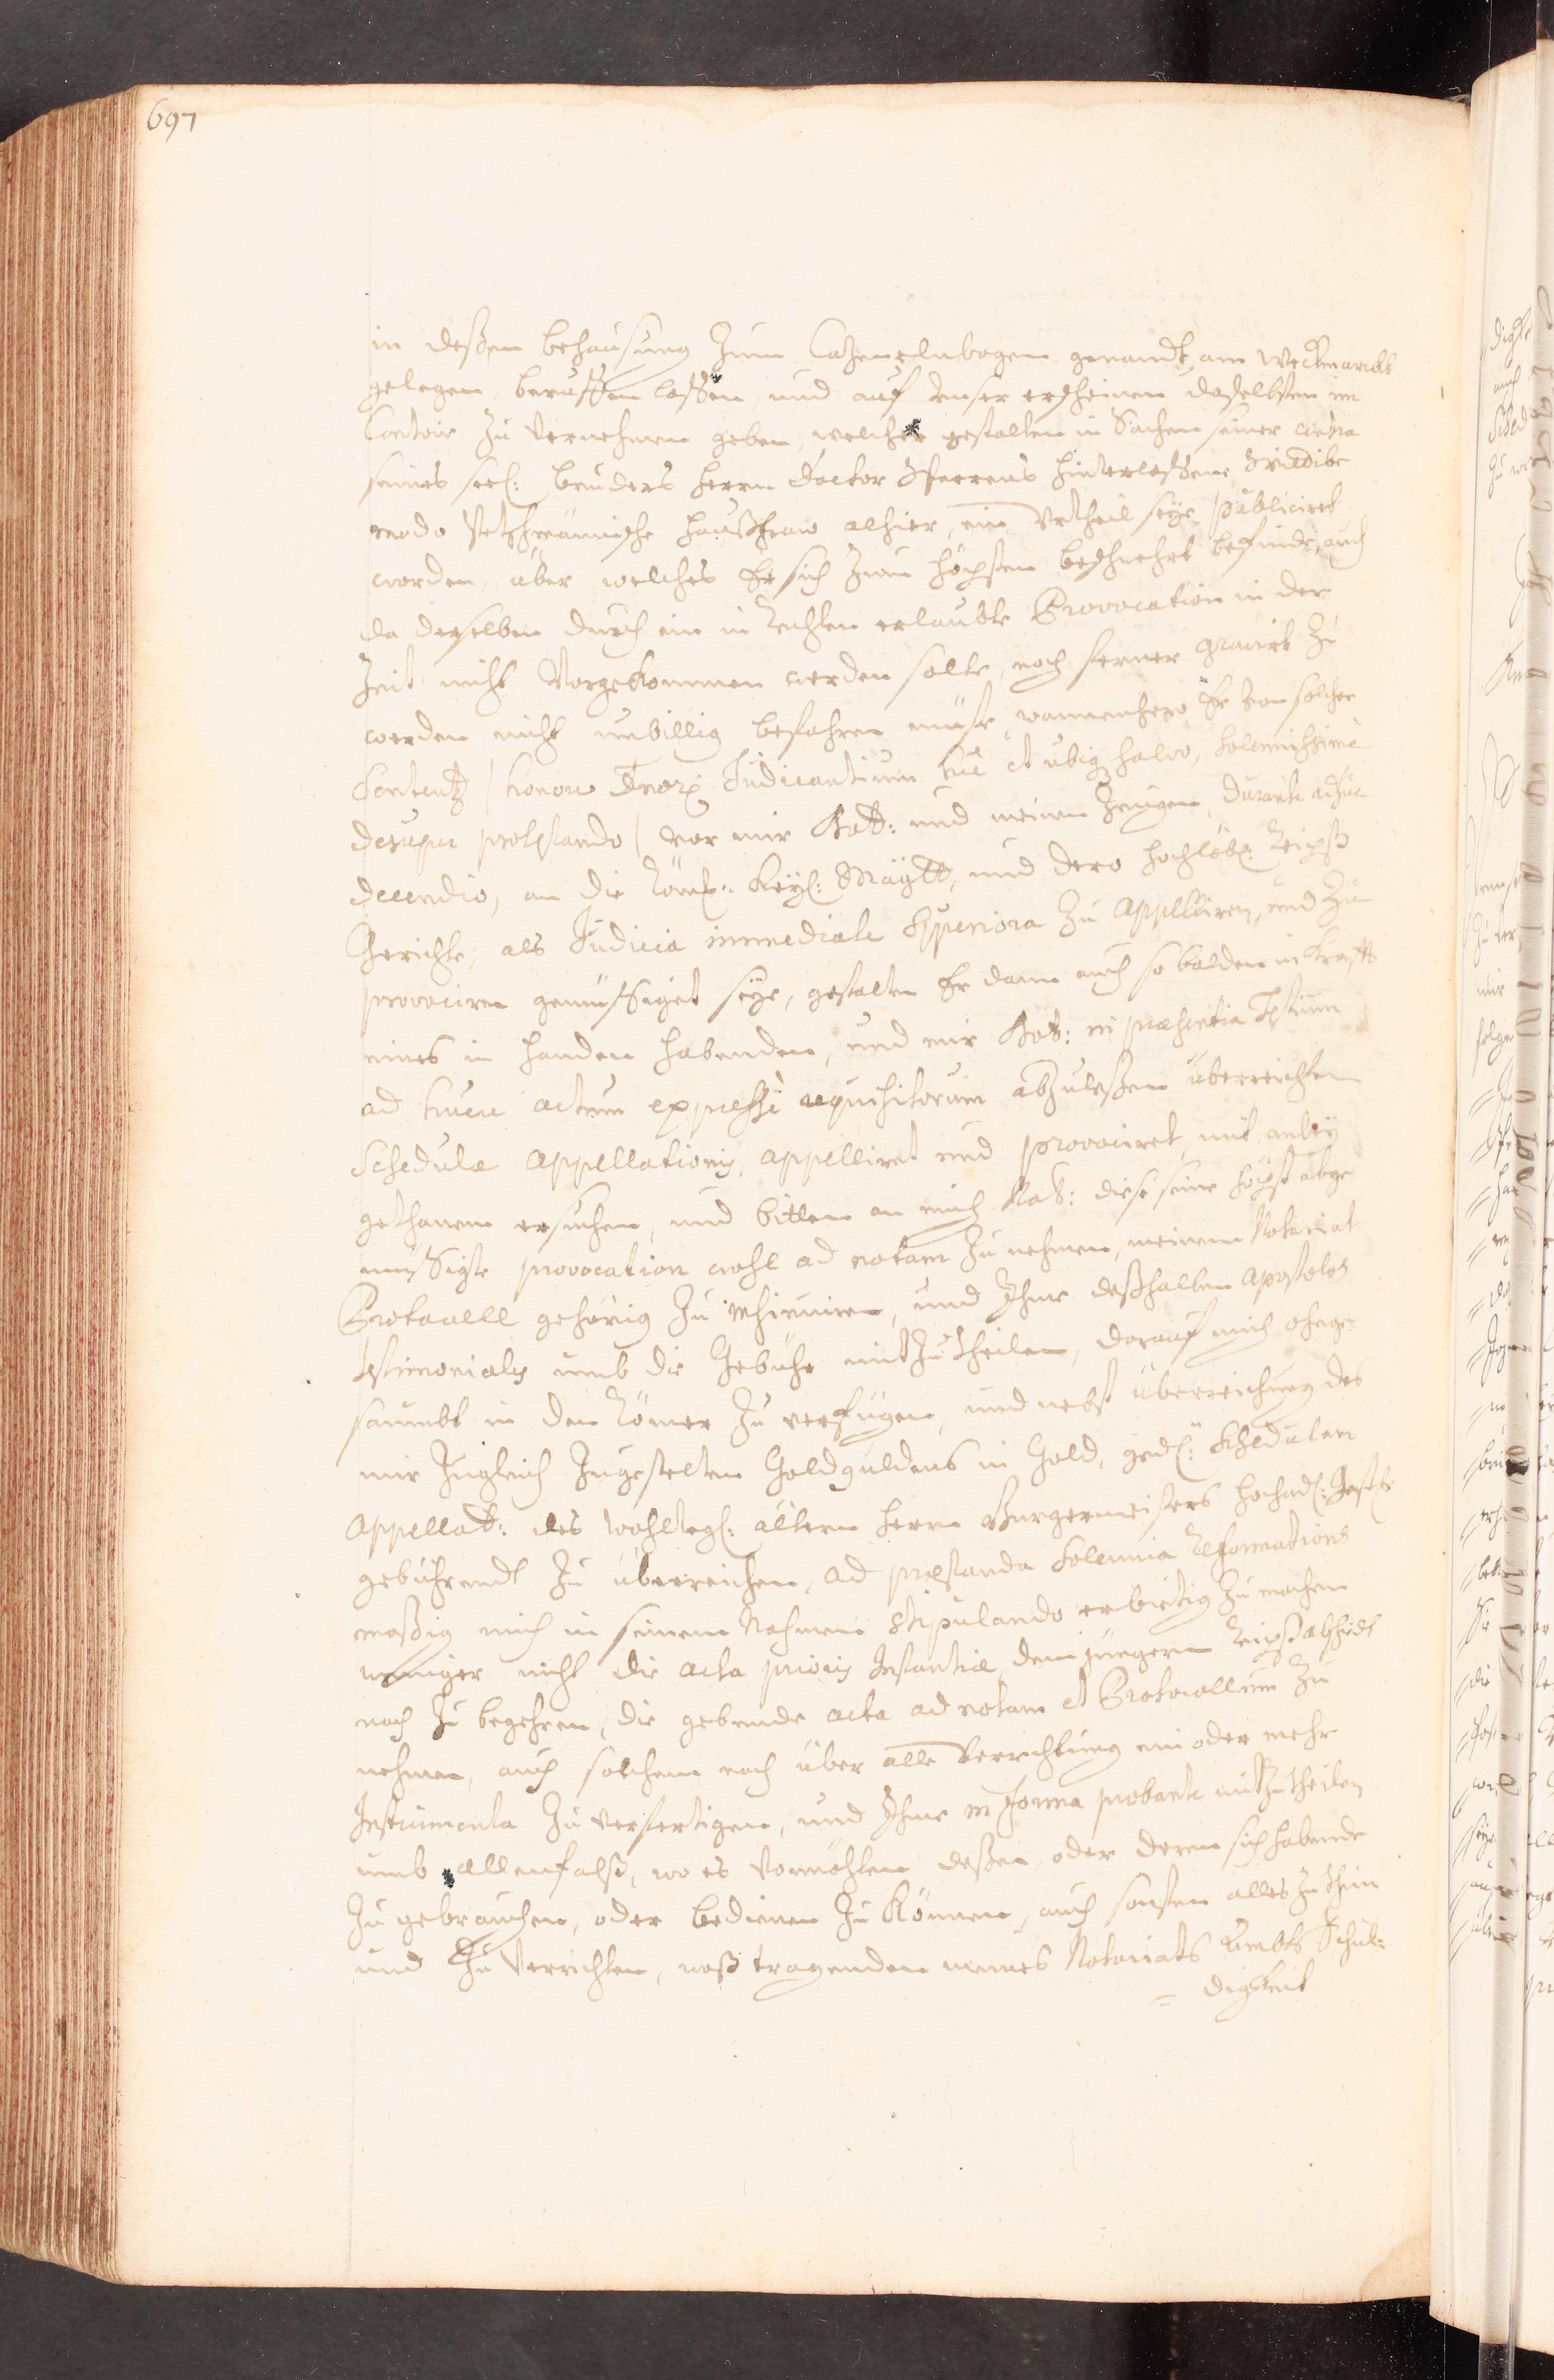 697
in deßen behaußung Zum Catzenelnbogen genandt, am Weckmarckt
gelegen beruffen laßen, und auf unser erscheinen daselbsten im
Contoir zu vernehmen geben, welcher gestalten in Sachen seiner contra
seines seel: bruders herrn Doctor hinterlaßene Wittibe
modo haußfraw alhier, ein Urtheil seye publiciret
worden, über welches Er sich zum höchsten beschwehrt befinde, auch
da derselben durch ein in Rechten erlaubte Provocation in der
Zeit nicht Vorgekommen werden solte, noch ferner gravirt zu
werden nicht unbillig befahren müste, wannenhero Er von solcher
Sententz / honore Dnorũ Judicantium hic et ubiq salvo, solemnissimè
desuper protestando / vor mir Nott: und meinen Zeugen, durante adhuc
decendio, an die Röm: Keys: Maÿtt, und dero hochlöbl: Reichs
Gerichte, als Judicia immediate Superiora zu appelliren, und zu
provociren gemüssiget seye, gestalten Er dann auch so balden in krafft
eines in handen habenden, und mir Not: in præsentia Testium
ad hunc actum expressè requisitorum abzuleßen überreichten
Schedulæ Appellationis, appelliret und provociret, mit anbey
gethanem ersuchen, und bitten an mich Not: diese seine höchst abge
müssigte provocation wohl ad notam zu nehmen, meinem Notariat
Protocoll gehörig zu inseriren, und Ihme deßhalben Apostolos
testimoniales umb die Gebühr mitzutheilen, darauf mich ohnge
saumbt in den Römer zu verfügen, und nebst überreichung des
mir zugleich zugestelten Goldguldens in Gold, ged: Schedulam
Appellatt: des Wohlregl: ältern herrn Burgermeisters hochadl: Gestr:
gebührendt zu überreichen, ad præstanda solennia Reformations
mäßig mich in seinem Nahmen stipulando erbietig zu machen
weniger nicht die acta prioris Instantiæ dem jüngern Reichsabschiedt
nach zu begehren, die gebende acta ad notam et Protocollum zu
nehmen, auch solchem nach über alle Verrichtung ein oder mehr
Instrumenta zu verfertigen, und Ihme in forma probante mitzutheilen
umb allenfalß, wo es vonnöhten deßen, oder deren sich habende
zu gebrauchen, oder bedienen zu können, auch sonsten alles zu thun
und zu verrichten, waß tragenden meines Notariats Ambts Schul-
= digkeit